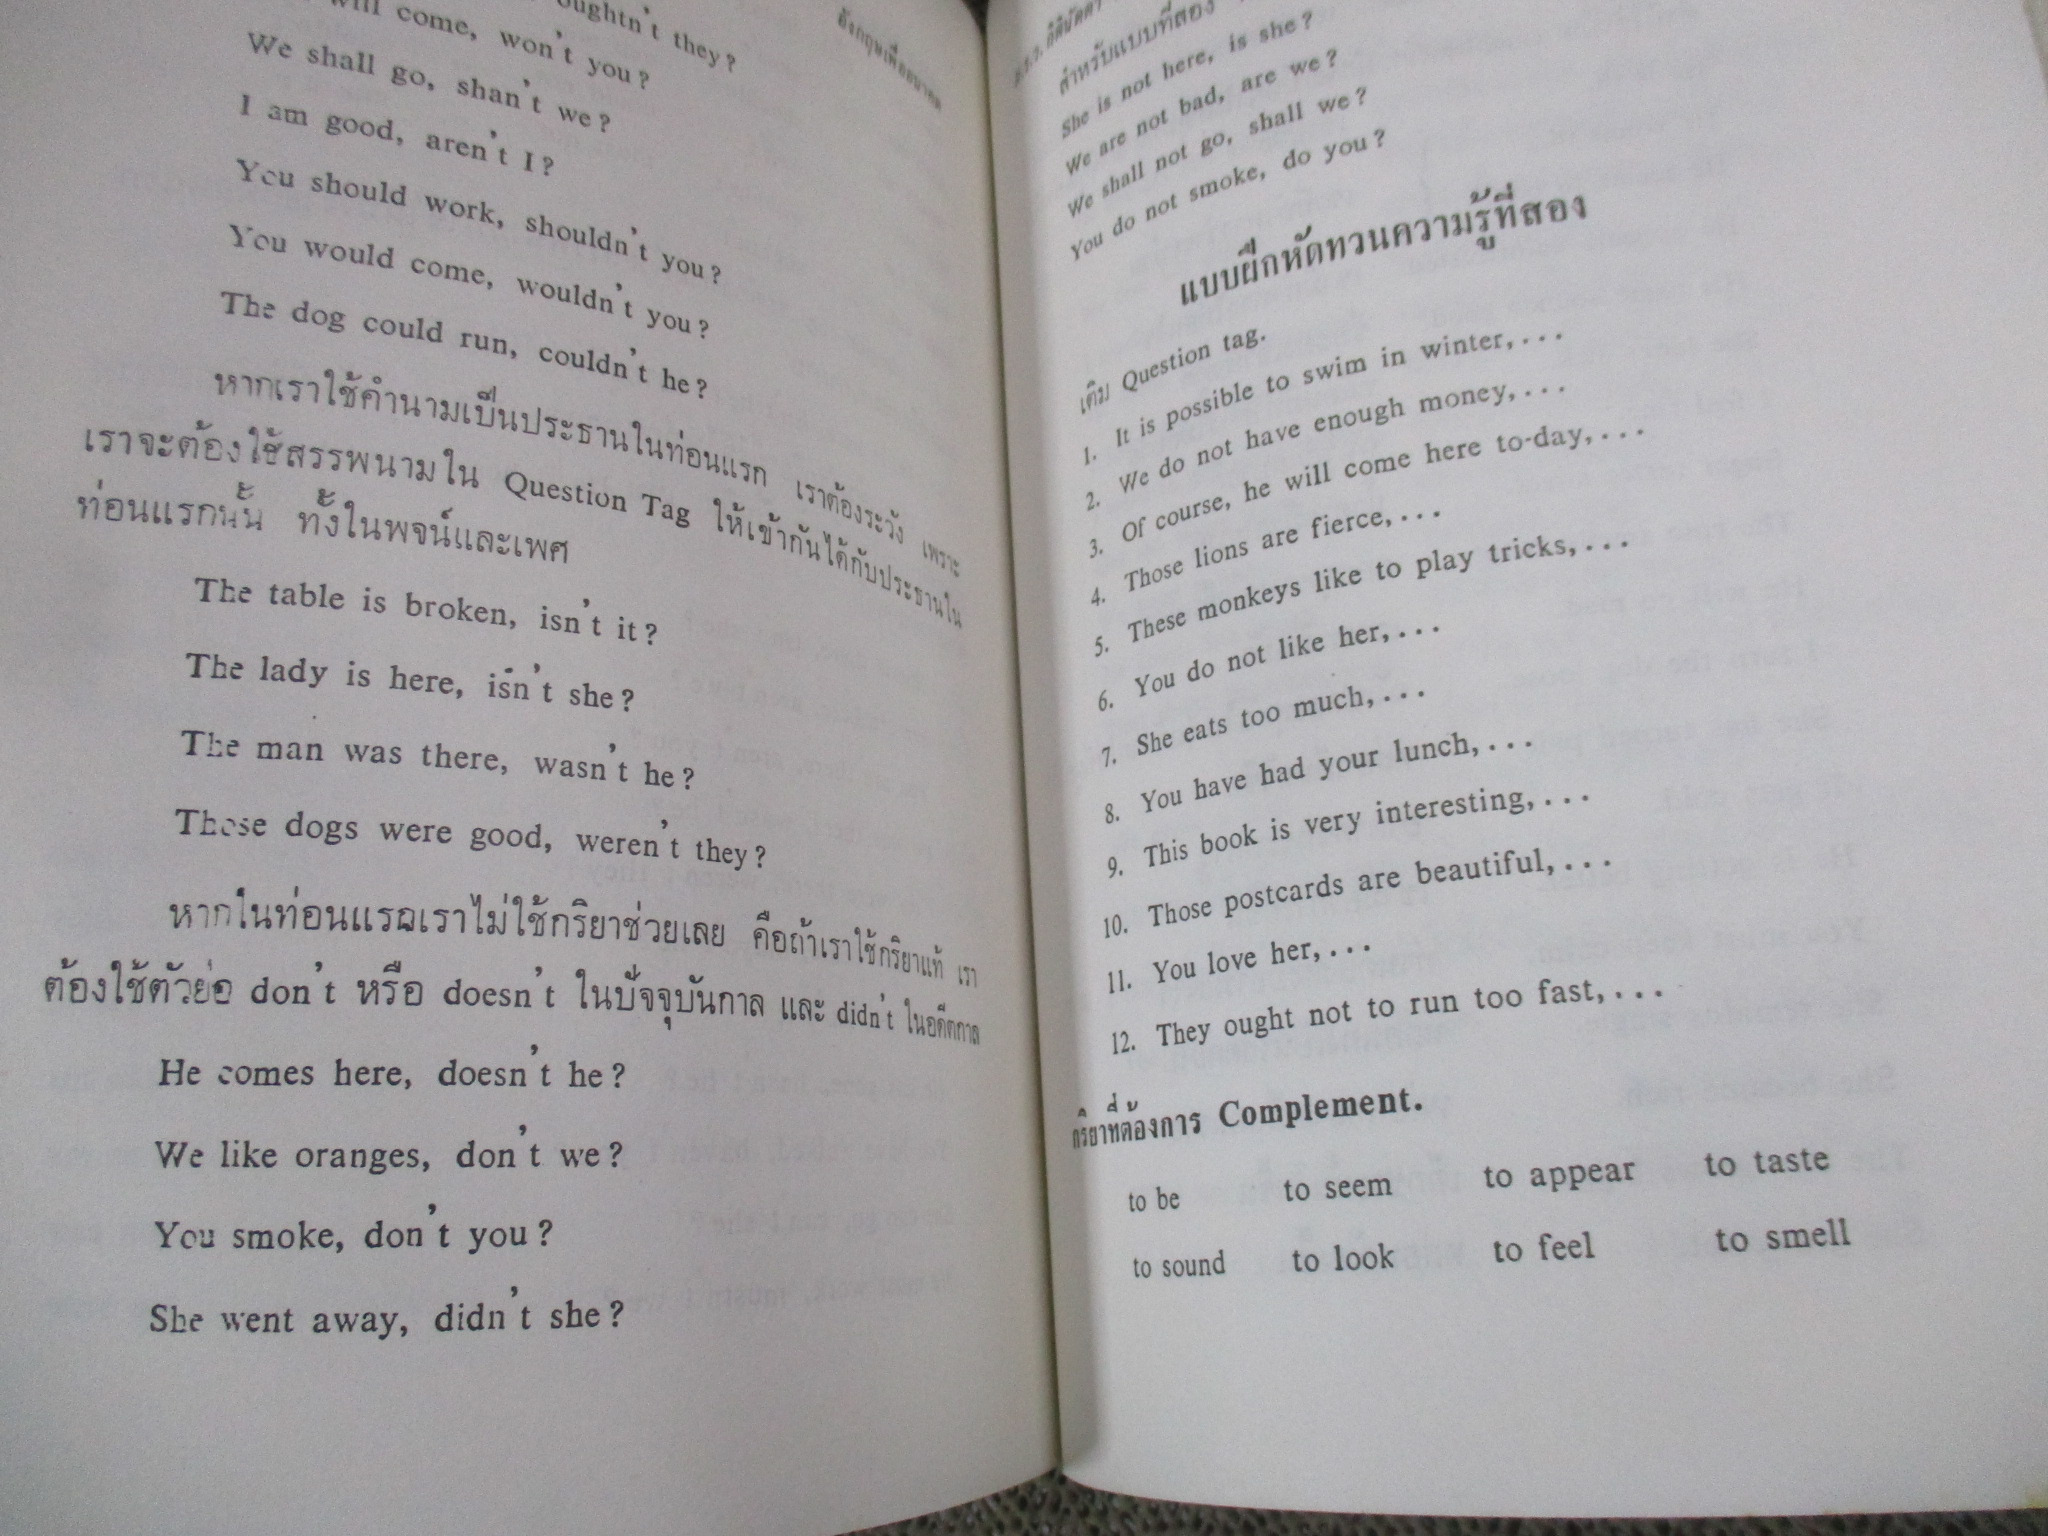 oughtn't they?
will come, won't you?
We shall go, shan't we?
I am good, aren't I?
You should work, shouldn't you?
You would come, wouldn't you?
The dog could run, couldn't he?
หากเราใช้คำนามเป็นประธานในท่อนแรก เราต้องระวัง เพราะ
เราจะต้องใช้สรรพนามใน Question Tag ให้เข้ากันได้กับประธานใน
ท่อนแรกนั้น ทั้งในพจน์และเพศ
The table is broken, isn't it?
The lady is here, isn't she?
The man was there, wasn't he?
Those dogs were good, weren't they?
หากในท่อนแรกเราไม่ใช้กริยาช่วยเลย คือถ้าเราใช้กริยาแท้ เรา
ต้องใช้ตัวย่อ don't หรือ doesn't ในปัจจุบันกาล และ didn't ในอดีตกาล
He comes here, doesn't he?
We like oranges, don't we?
You smoke, don't you?
She went away, didn't she?
สำหรับแบบที่สอง
She is not here, is she?
We are not bad, are we?
We shall not go, shall we?
You do not smoke, do you?
แบบฝึกหัดทวนความรู้ที่สอง
เติม Question tag.
1. It is possible to swim in winter,...
2. We do not have enough money,...
3. Of course, he will come here to-day,...
4. Those lions are fierce,...
5. These monkeys like to play tricks,...
6. You do not like her,...
7. She eats too much,...
8. You have had your lunch,...
9. This book is very interesting,...
10. Those postcards are beautiful,...
11. You love her,...
12. They ought not to run too fast,...
กริยาที่ต้องการ Complement.
to be to seem to appear to taste
to sound to look to feel to smell